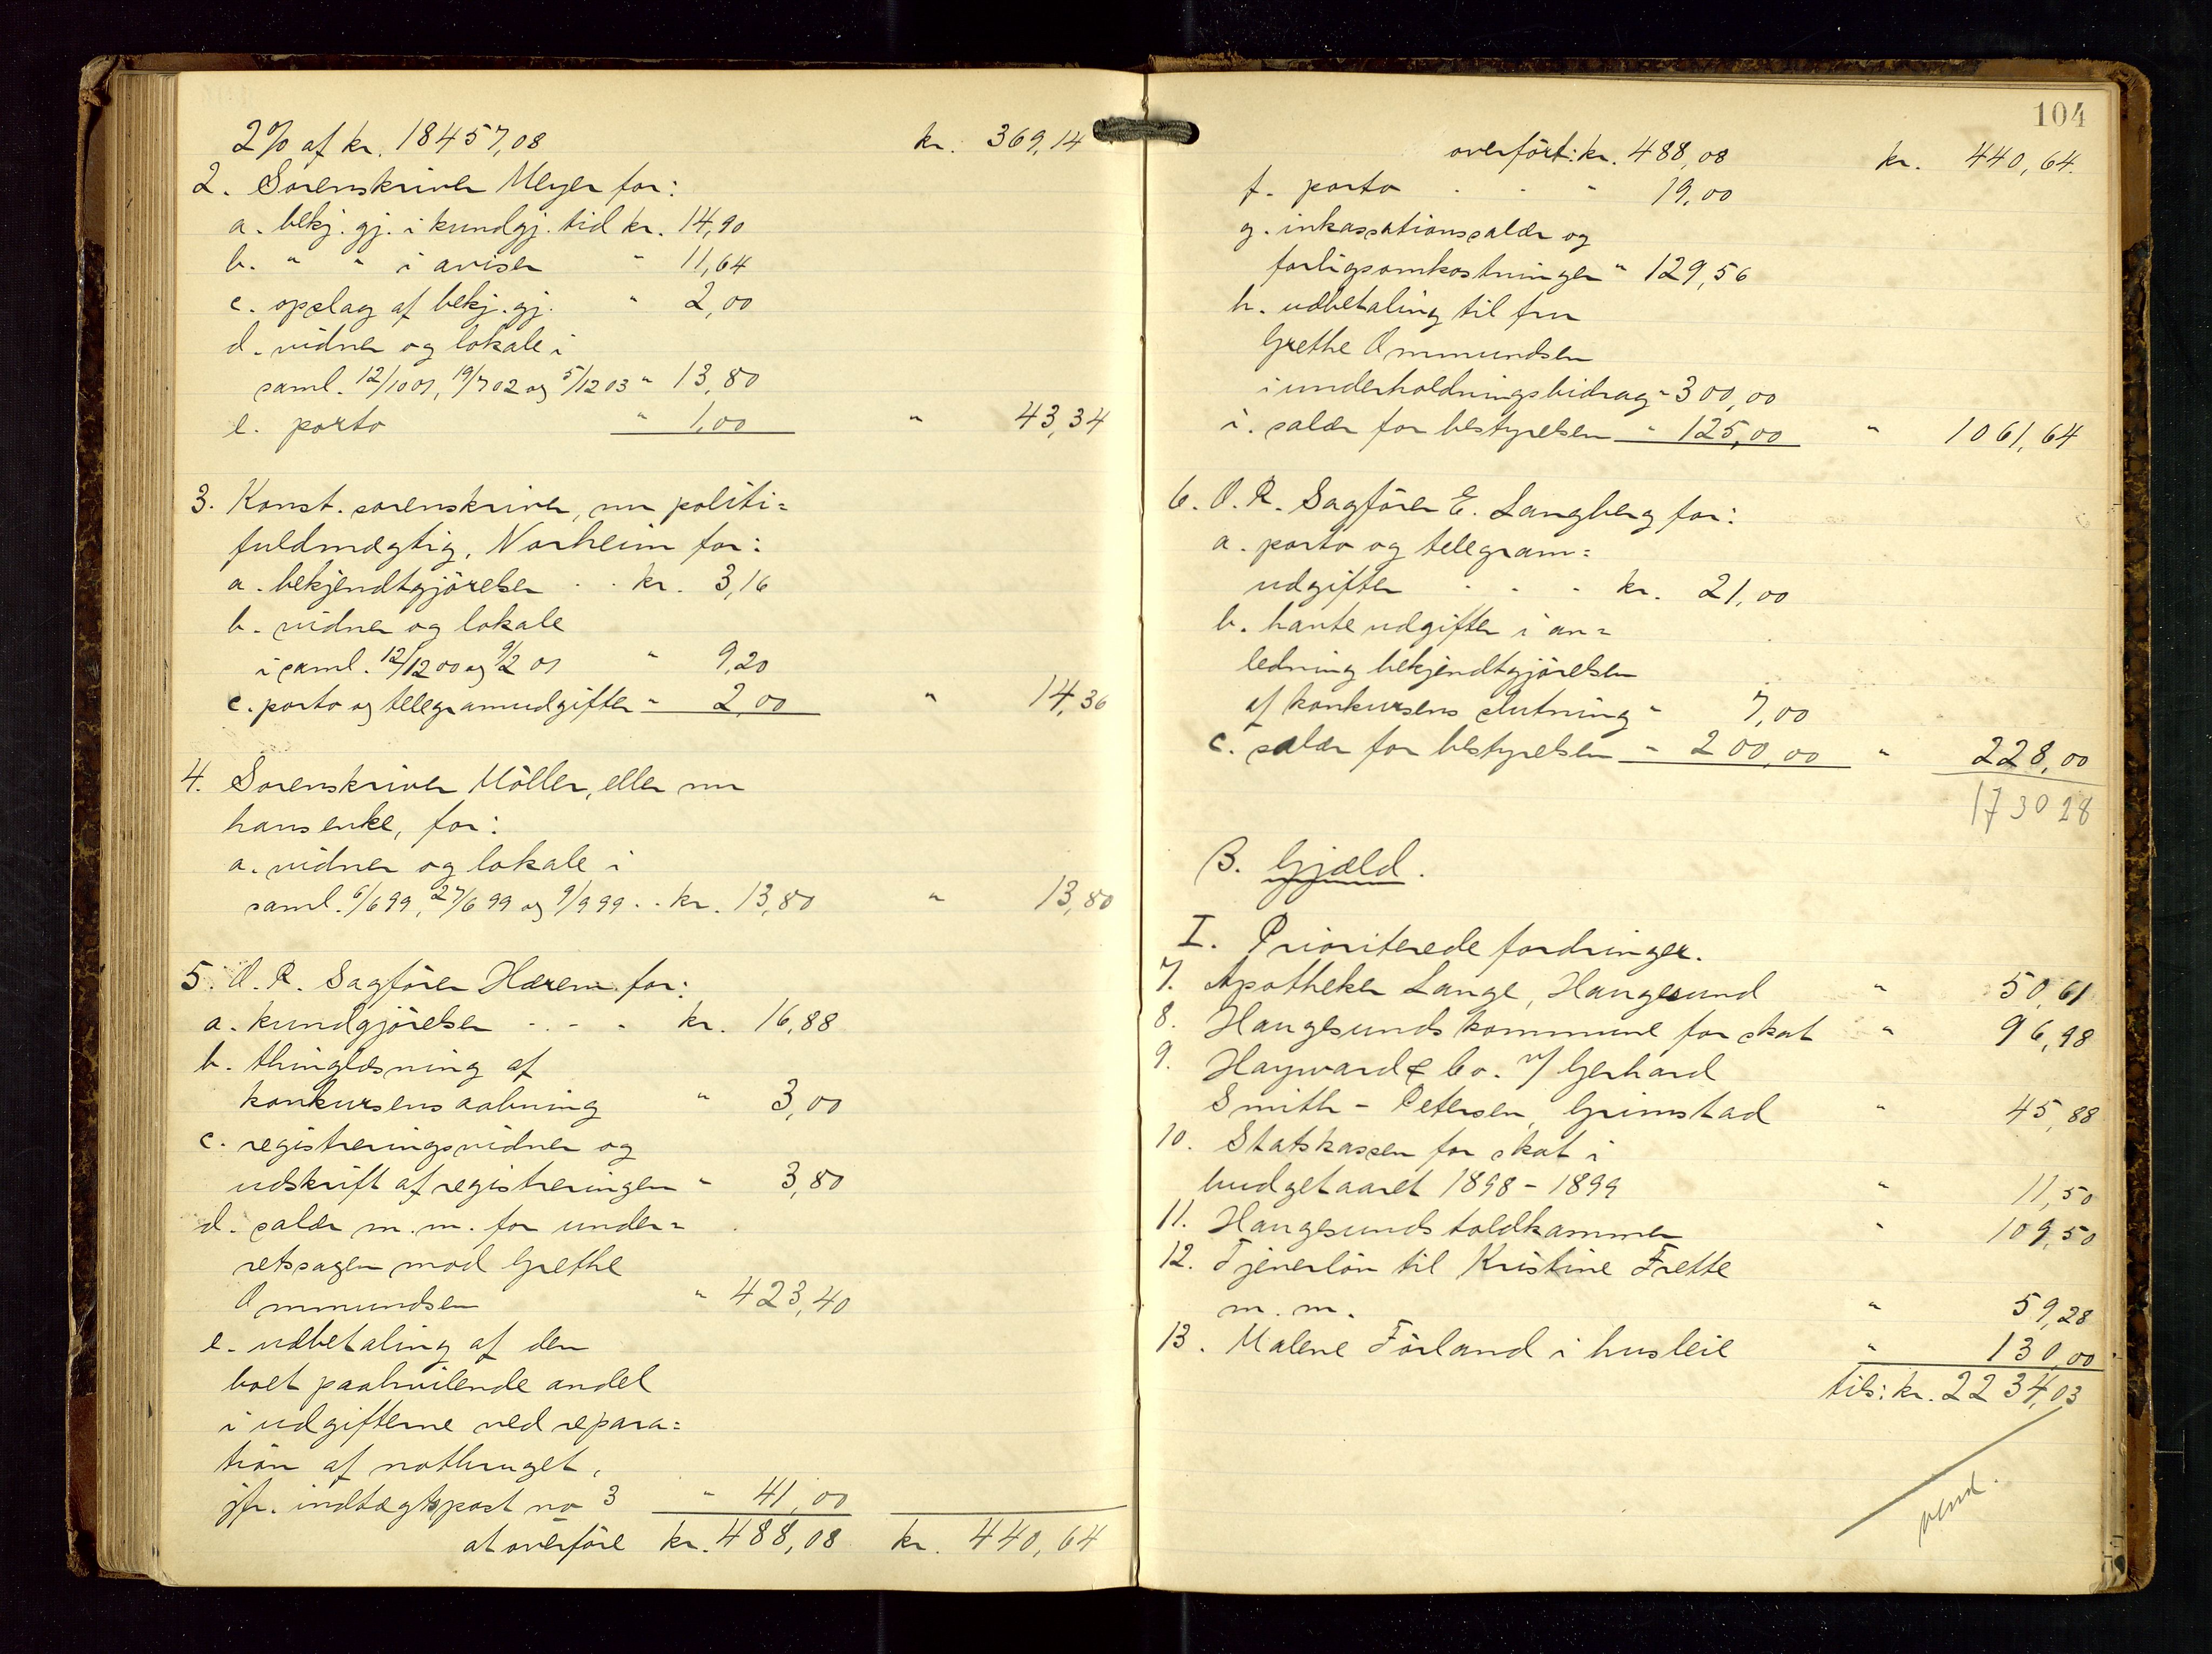 2% af kr. 18457,08 kr. 369,14
2. Sorenskriver Meyer for:
a. bekj. gj. i kundgj. tid kr. 14,90
b. " " i aviser " 11,64
c. opslag af bekj. gj. " 2,00
d. vidner og lokale i
saml. 12/10 01, 19/7 02 og 5/12 03 " 13,80
e. porto " 1,00 " 43,34
3. Konst. sorenskriver, nu politi=
fuldmægtig, Norheim for:
a. bekjendtgjörelser . . kr. 3,16
b. vidner og lokale
i saml. 12/12 00 og 9/2 01 " 9,20
c. porto og telegramudgifter " 2,00 " 14,36
4. Sorenskriver Möller, eller nu
hans enke, for:
a. vidner og lokale i
saml. 6/6 99, 27/6 99 og 9/9 99 . . kr. 13,80 " 13,80
5. O. R. Sagförer Hærem for:
a. kundgjörelser . . . . kr. 16,88
b. thinglæsning af
konkursens aabning " 3,00
c. registreringsvidner og
udskrift af registreringen " 3,80
d. salær m. m. for under=
retssagen mod Grethe
Ommundsen " 423,40
e. udbetaling af den
boet paahvilende andel
i udgifterne ved repara=
tion af notbruget,
jfr. indtægtspost no 3 " 41,00
at overföre kr. 488,08 kr. 440,64
104
overfört: kr. 488,08 kr. 440,64.
f. porto . . " 19,00
g. inkassationssalær og
forligsomkostninger " 129,56
h. udbetaling til fru
Grethe Ommundsen
i underholdningsbidrag " 300,00
i. salær for bestyrelsen " 125,00 " 1061,64
6. O. R. Sagförer E. Langberg for:
a. porto og telegram=
udgifter . . . kr. 21,00
b. havte udgifter i an=
ledning bekjendtgjörelsen
af konkursens slutning " 7,00
c. salær for bestyrelsen " 200,00 " 228,00
1730 28
B. Gjæld.
I. Prioriterede fordringer.
7. Apotheker Lange, Haugesund " 50,61
8. Haugesunds kommune for skat " 96,98
9. Hayward & Co. v/ Gerhard
Smith - Petersen, Grimstad " 45,88
10. Statskassen for skat i
budgetaaret 1898 - 1899 " 11,50
11. Haugesunds toldkammer " 109,50
12. Tjenerlön til Kristine Frette
m. m. " 59,28
13. Malene Förland i husleie " 130,00
tils: kr. 2234,03
vend.